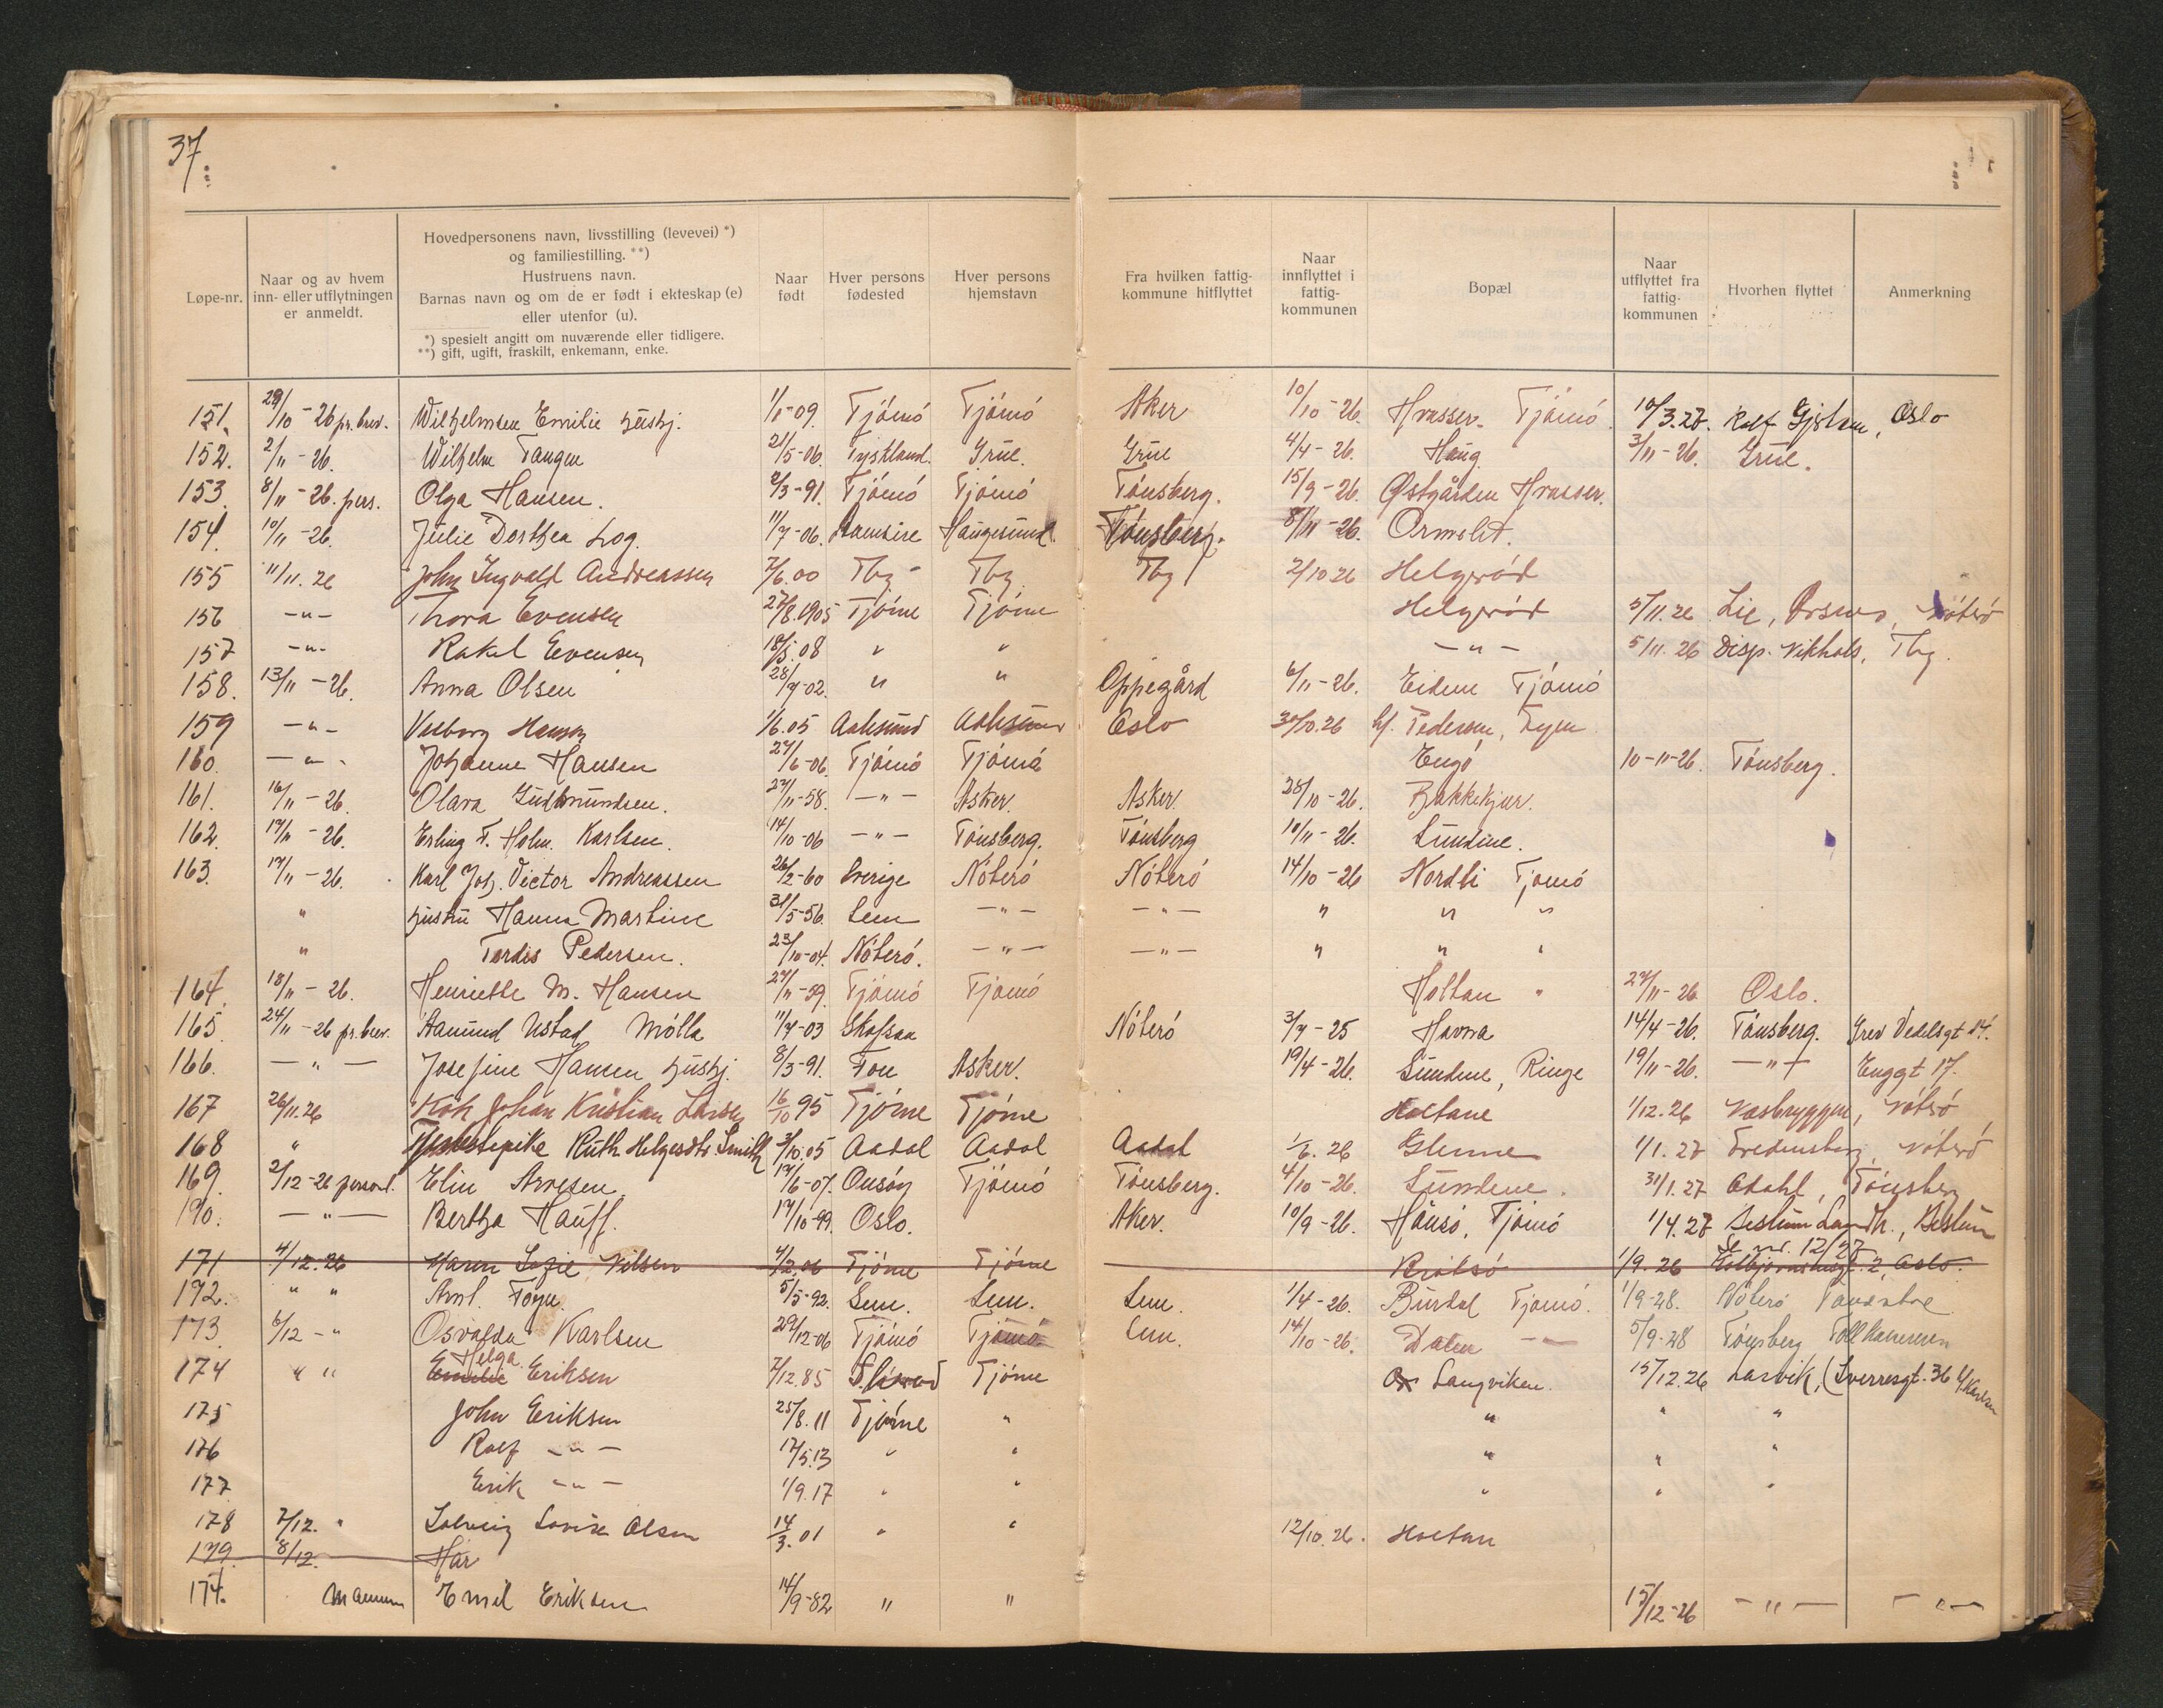 37.
Løpe-nr. | Naar og av hvem inn- eller utflytningen er anmeldt. | Hovedpersonens navn, livsstilling (levevei) *) og familiestilling. **) Hustruens navn. Barnas navn og om de er født i ekteskap (e) eller utenfor (u). *) spesielt angitt om nuværende eller tidligere. **) gift, ugift, fraskilt, enkemann, enke. | Naar født | Hver persons fødested | Hver persons hjemstavn | Fra hvilken fattig-kommune hitflyttet | Naar innflyttet i fattig-kommunen | Bopæl | Naar utflyttet fra fattig-kommunen | Hvorhen flyttet | Anmerkning
151. 29/10-26 pr. brev. Wilhelmsen Emilie hushj. 1/1-09. Tjömö Tjömö Aker 10/10-26. Hvasser. Tjömö. 10/3.27. Oslo
152. 2/11-26. Wilhelm Tangen 21/5-06. Tyskland. Grue. Grue 4/4-26. Haug. 3/11-26. Grue.
153. 8/11-26. pers. Olga Hansen. 2/3-91. Tjömö Tjömö Tönsberg. 15/9-26. Østgården Hvasser.
154. 10/11-26. Julie Dorthea Log. 11/7-06. Haugesund. Tönsberg. 8/11-26. Ormelet.
155 11/11.26 John Ingvald Andreassen 7/6.00 Tbg Tbg. Tbg 2/10 26 Helgeröd
156 -"- Thora Evensen 27/8.1905 Tjöme Tjöme Helgeröd 5/11.26 Lie, Nöterö
157 -"- Rakel Evensen 18/5.08 " " -"- 5/11.26 Disp. Vikholt, Tbg.
158. 13/11-26. Anna Olsen 28/7-02. " " Oppegård 6/11-26. Eidene Tjömö
159 -"- Valborg Hansen 1/6.05 Aalesund Aalesund Oslo 30/10.26 Pedersen,
160. -"- Johanne Hansen 27/6-06. Tjömö Tjömö Engö 10-11-26. Tönsberg.
161. 16/11-26. Olava Gudmundsen. 27/11-58. -"- Asker. Asker. 28/10-26. Bakkekjær.
162. 17/11-26. Erling F. Holm. Karlsen. 14/10-06 -"- Tönsberg. Tönsberg 10/11-26. Sundene.
163. 17/11-26. Karl Joh. Victor Andreassen 26/2-60 Sverige Nöterö Nöterö 14/10-26 Nordli Tjömö
" hustru Hanna Martine 31/5-56. Sem -"- -"- " " "
" Tordis Pedersen. 23/10-04. Nöterö. -"- -"- " " "
164. 18/11-26. Henriette M. Hansen 27/11-59. Tjömö Tjömö Holtan " 27/11-26 Oslo.
165. 24/11-26 pr. brev. Aamund Ustad Mölla 11/7-03 Nöterö 3/7-25 Havna 14/4-26. Tönsberg. Grev Wedelsgt 14.
166. -"- Josefine Hansen hushj. 8/3-91. Fon Asker. 19/4-26. Sundene, Ringe 19/11-26. -"- Enggt 17.
167 26/11.26 Kok Johan Kristian Larsen 16/10 95 Tjöme Tjöme Holtane 1/12.26 Vasbryggen, Nöterö
168 " Tjenestepike Ruth Helgesdtr. Smith 3/10.05 Aadal Aadal Aadal 1/6.26 Glenne 1/1.27 Fredensborg, Nöterö
169. 2/12-26 personl. Elin Arvesen 17/6-07. Onsöy Tjömö Tönsberg. 4/10-26. Sundene. 31/1.27 Tönsberg
170. -"- Bertha Hauff. 17/10-99. Oslo. Aker. 10/9-26. Håusö, Tjömö 1/4.27 Bestum
Se nr. 12/27
171 4/12.26 Maren Sofie Nilsen 4/2.06 Tjöme Tjöme 1/9.26 2, Oslo.
172. " " Arnt. Föyn. 5/5-92. Sem. Sem. Sem. 1/4-26. Burdal Tjömö. 1/9-28. Nöterö
173. 6/12-" Osvalda Karlsen 29/12-06 Tjömö Tjömö Sem. 14/10-26. Dalen -"- 5/9-28 Tönsberg
Helga
174 " " Emilie Eriksen 7/12.85 Tjöme Langviken. 15/12.26 Larvik, (Sverresgt. 36
175 John Eriksen 25/8.11 Tjöme " " " "
176 Rolf -"- 17/5.13 " " " " "
177 Erik -"- 1/9.17 " " " " "
178 7/12. " Solveig Lovise Olsen 14/3.01 " " 12/10.26. Holtan
179. 8/12. Har
174. Mannen Emil Eriksen 14/9-82 " " 15/12-26 -"- -"-